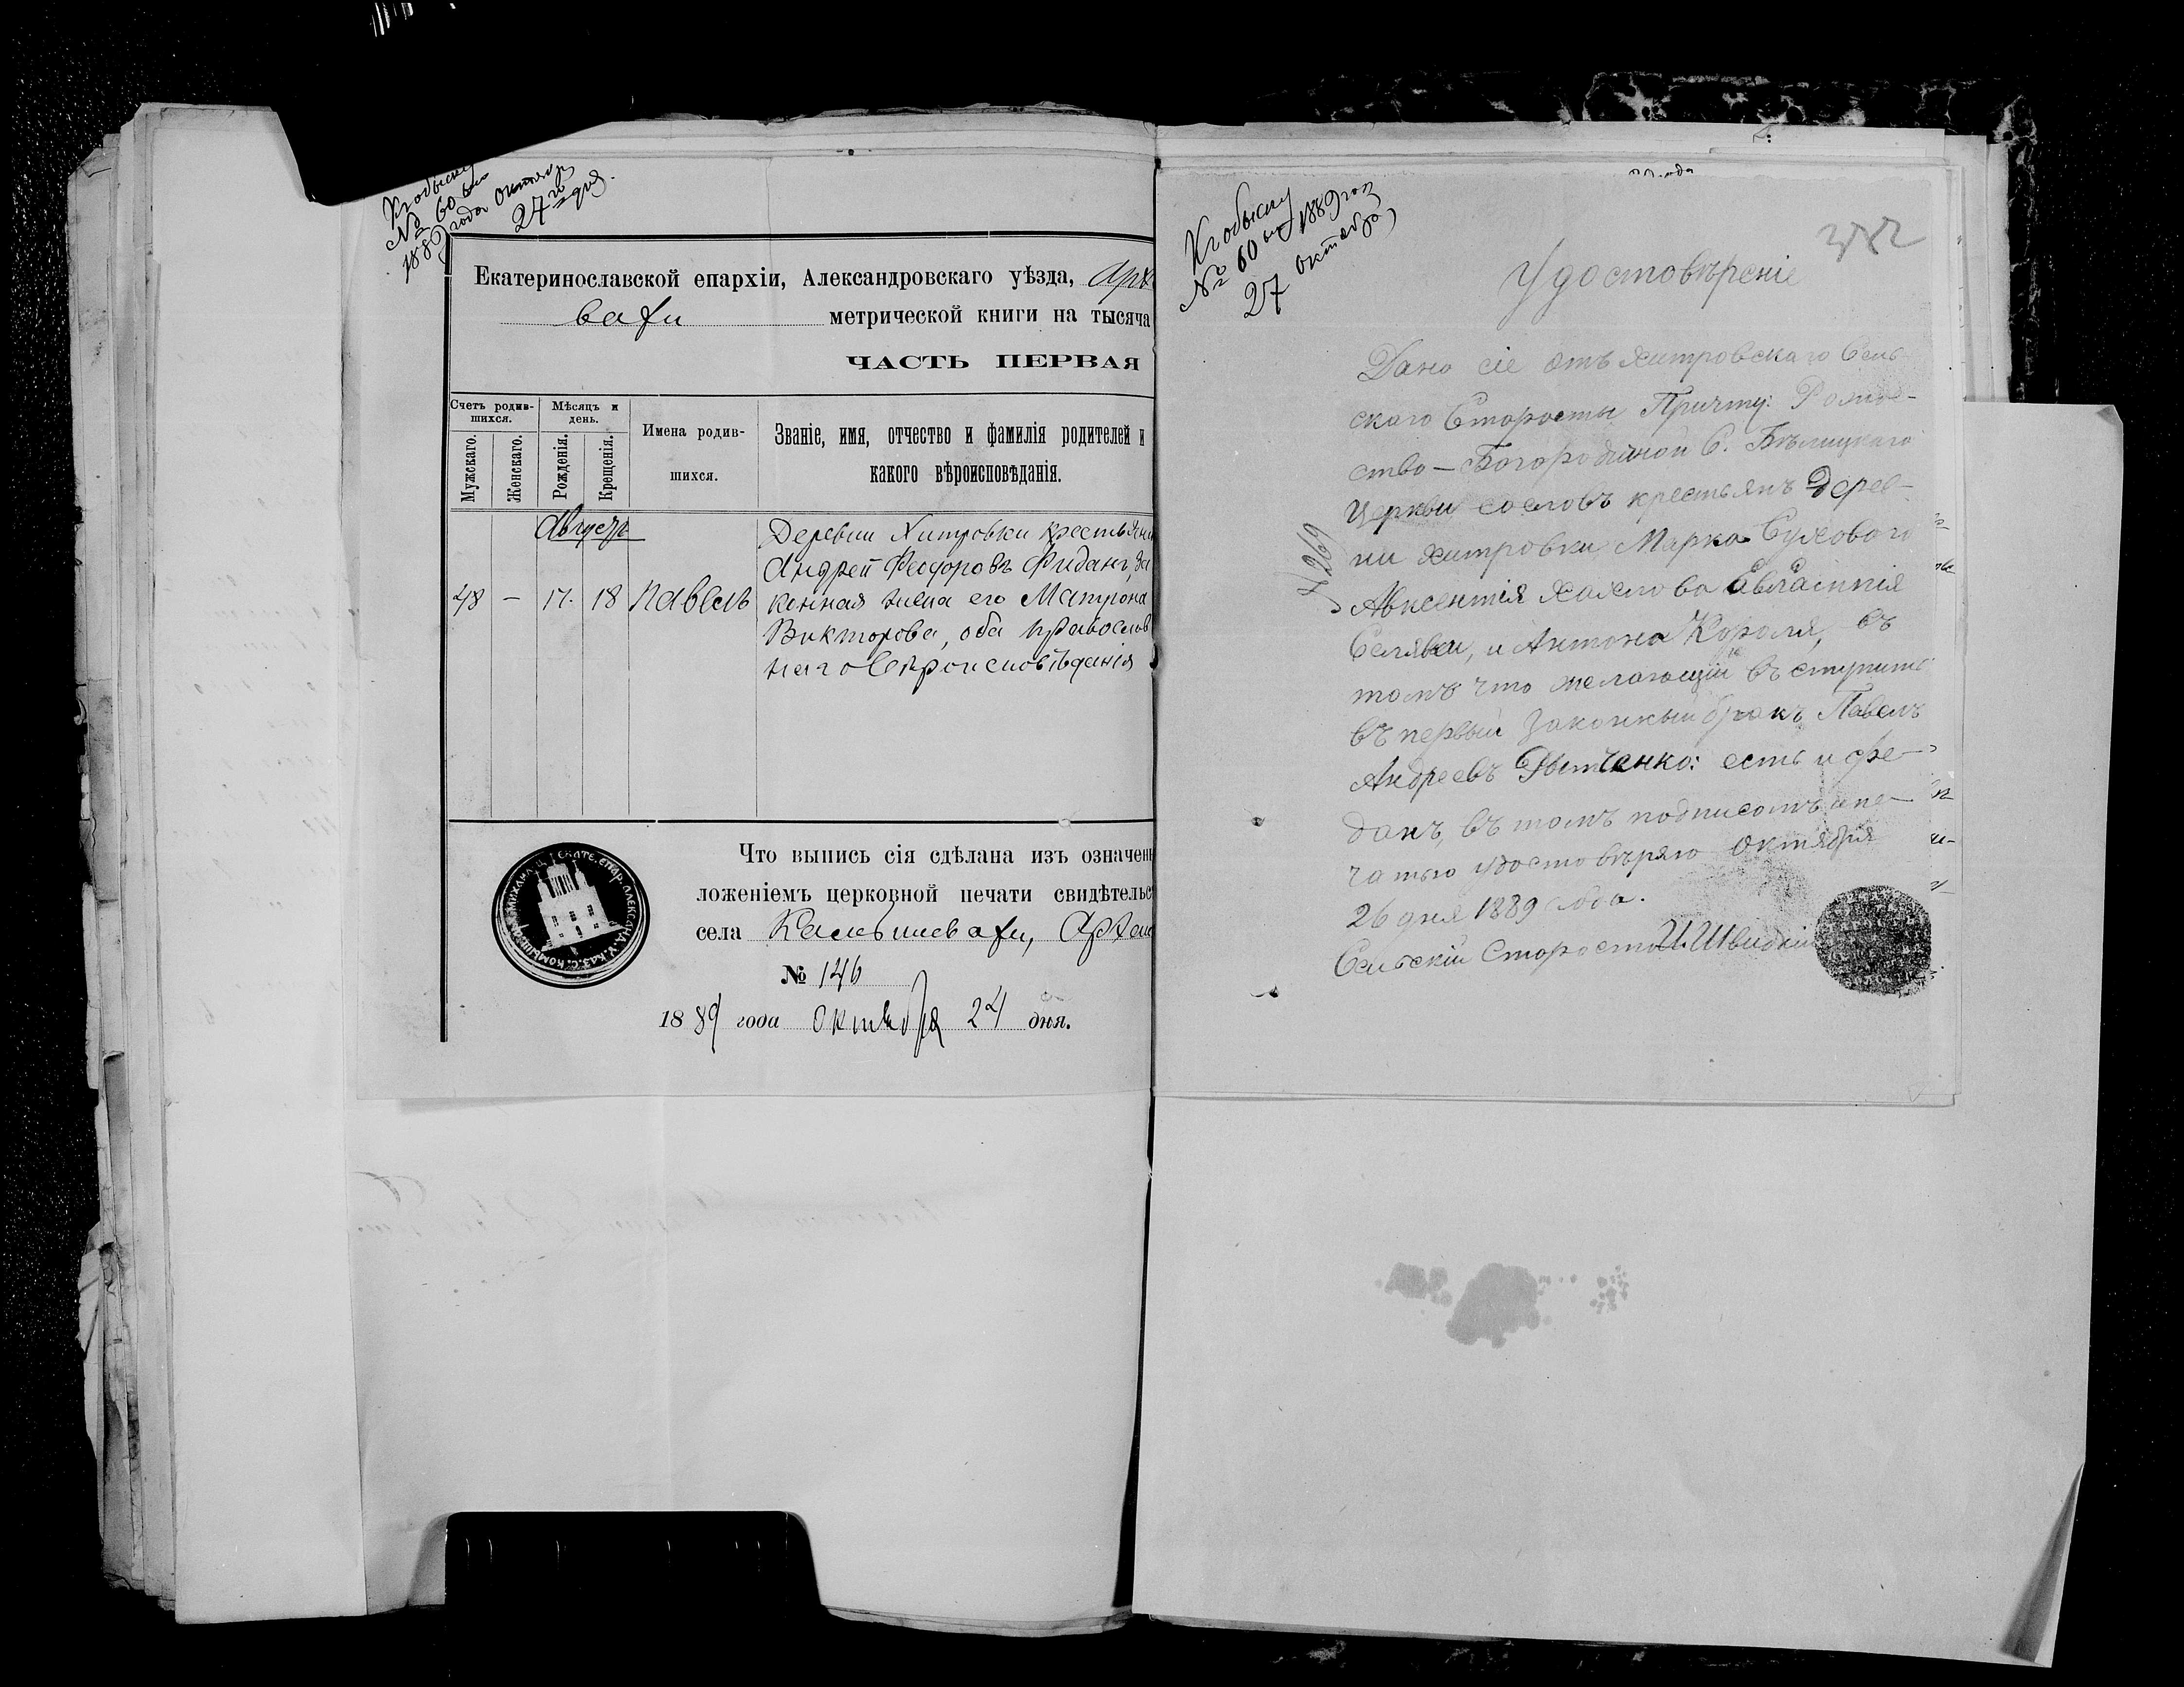 К обыску
№ 60 ым
1889 года Октября
27 го дня.
Екатеринославской епархіи, Александровскаго уѣзда, Арх
вахи метрической книги на тысяча
ЧАСТЬ ПЕРВАЯ
Счетъ родив-
шихся.
Мужскаго.
Женскаго.
Мѣсяцъ и
день.
Рожденія.
Крещенія.
Имена родив-
шихся.
Званіе, имя, отчество и фамилія родителей и
какого вѣроисповѣданія.
Августъ
48 — 17. 18 Павелъ
Деревни Хитровки крестьянин
Андрей Феодоровъ Фиданъ, за
конная жена его Матрона
Викторова, оба православ
наго вѣроисповѣданія
Что выпись сія сдѣлана изъ означенн
ложеніемъ церковной печати свидѣтельс
села Камышевахи, Архан
№ 146
1889 года октября 24 дня.
К обыску
№ 60 ым 1889 год
27 октября
Удостовѣреніе
№ 269
Дано сіе отъ Хитровскаго Сель
скаго Старосты Причту: Рожде-
ство-Богородичной С. Бѣлицкаго
Церкви со словъ крестьянъ Дерев-
ни Хитровки Марка Сухового
Авксентія Хахлова Евлампія
Селявки, и Антона Короля, въ
томъ что желающій въступить
въ первый законный бракъ Павелъ
Андреевъ Дытченко: есть и Фе-
данъ, въ томъ подписомъ и пе-
чатью удостовѣряю Октября
26 дня 1889 года.
Сельскій Староста И. Швидкій